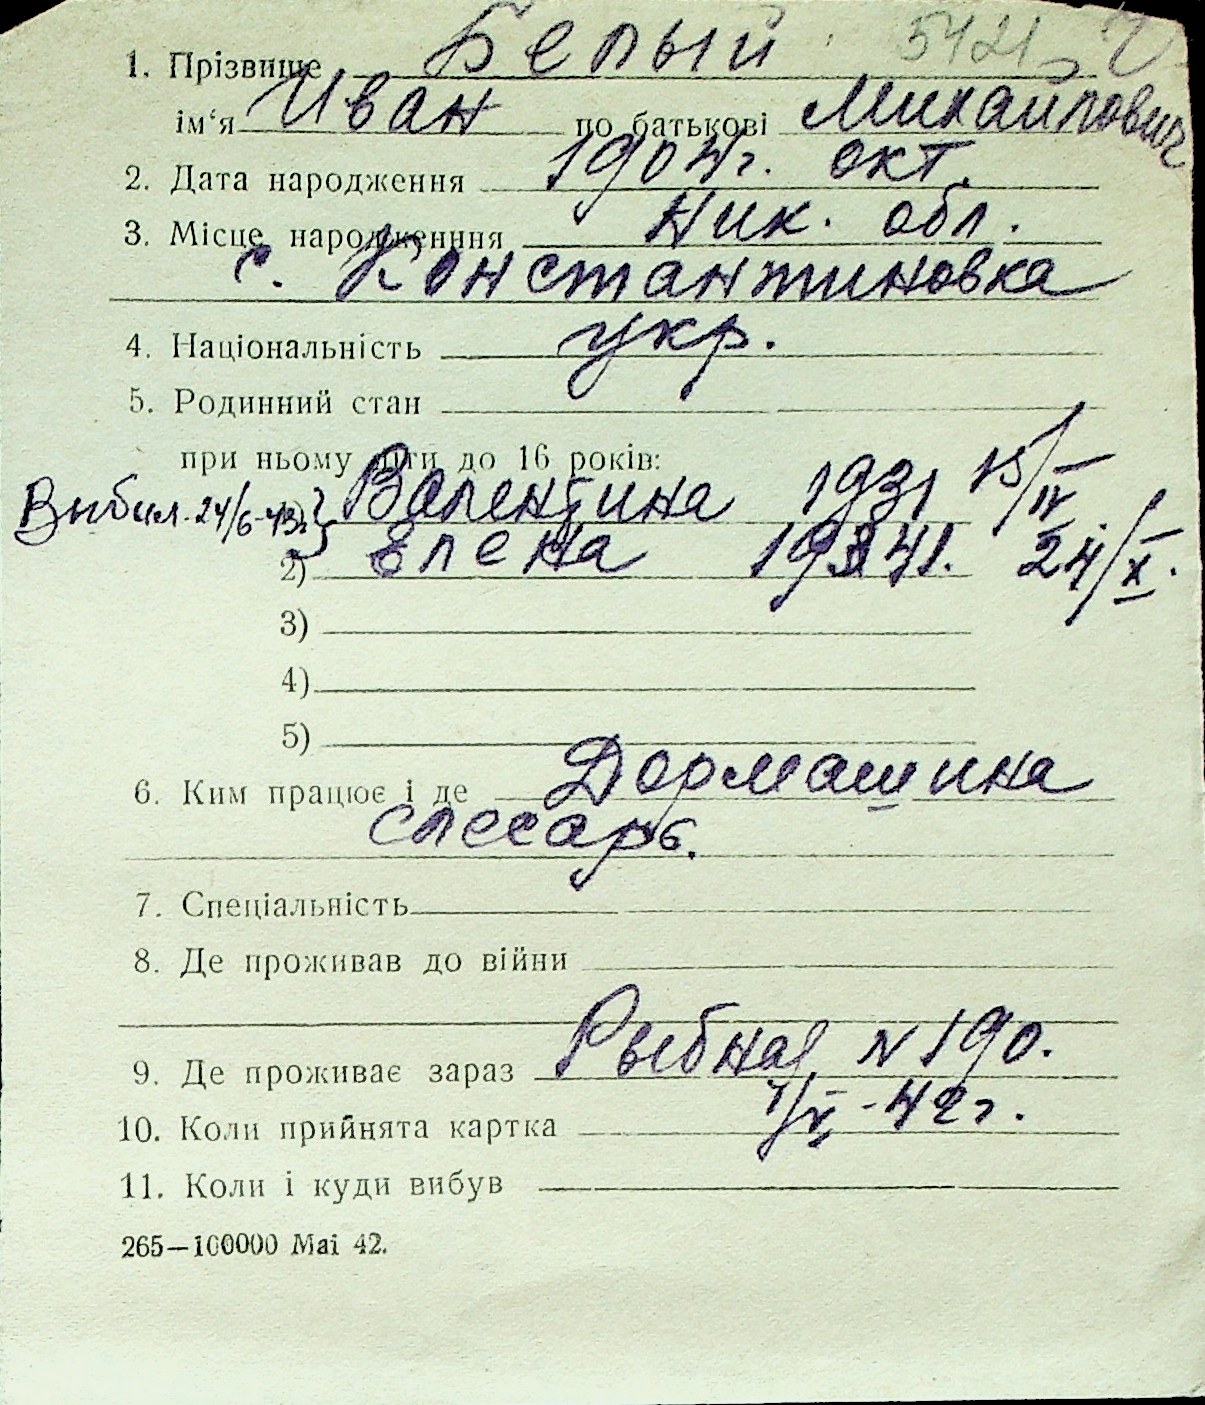 1. Прізвище Белый 5421
ім‘я Иван по батькові Михайлович
2. Дата народження 1904г. окт.
3. Місце народженння Ник. обл.
с. Константиновка
4. Національність укр.
5. Родинний стан
при ньому діти до 16 років:
Выбыл 24/6-43г. Валентина 1931 15/IV
2) Елена 1941. 24/X.
3)
4)
5)
6. Ким працює і де Дормашина
слесарь.
7. Спеціальність
8. Де проживав до війни
9. Де проживає зараз Рыбная N 190.
10. Коли прийнята картка 1/V-42г.
11. Коли і куди вибув
265—100000 Mai 42.